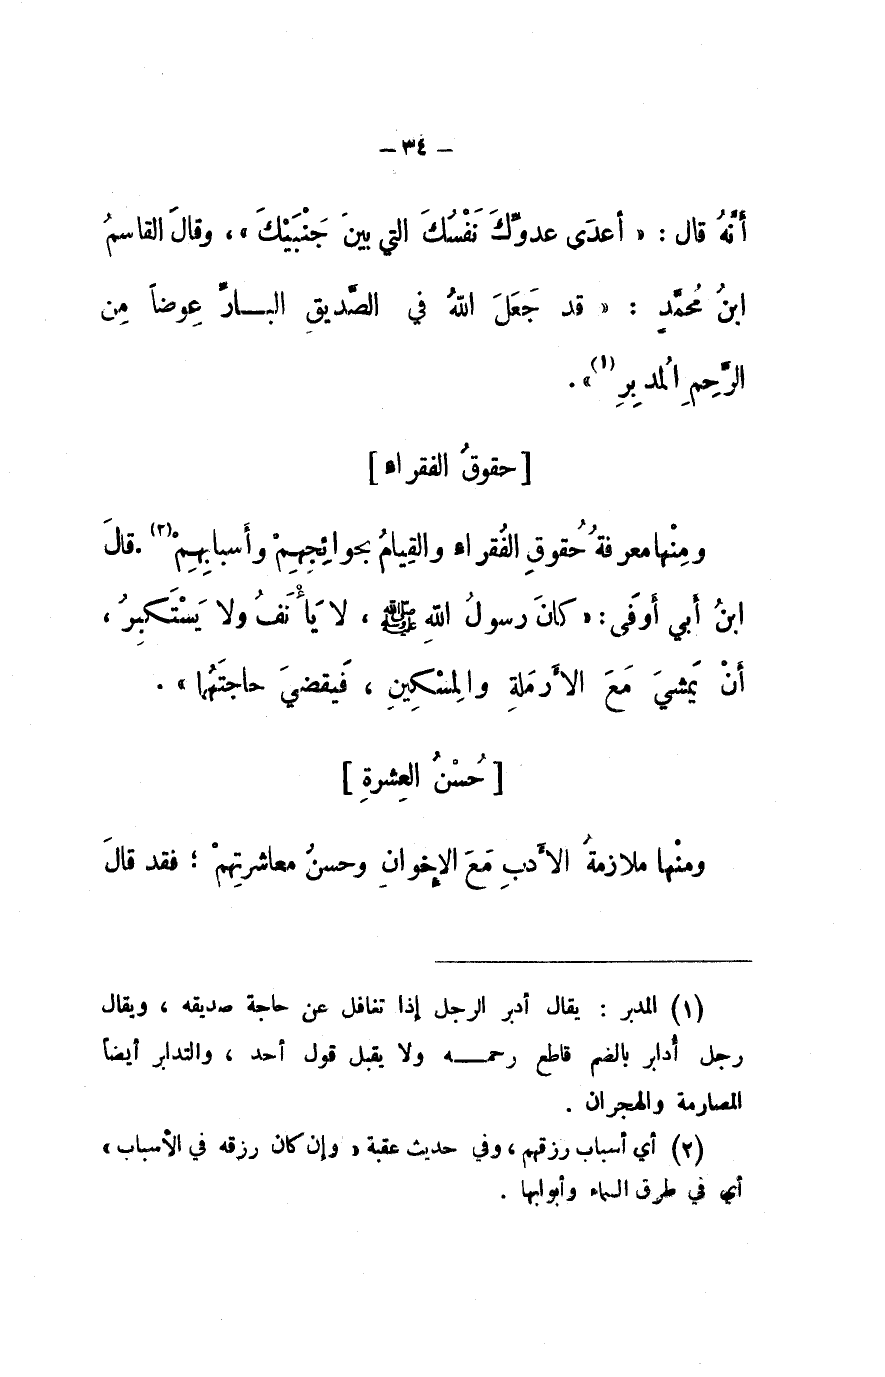 – ٣٤ –
أنَّهُ قال : « أعدَى عدوِّكَ نَفْسُكَ التي بينَ جَنْبَيْكَ » ، وقالَ القاسمُ
ابنُ مُحمَّدٍ : « قد جَعَلَ اللهُ في الصَّديقِ البـــارِّ عِوضاً مِن
الرَّحِمِ المُدبِرِ (١) » .
[ حقوقُ الفقراء ]
ومِنْها معرفةُ حُقوقِ الفُقراءِ والقِيامُ بحوائِجِهِمْ وأسبابِهِمْ (٢) . قالَ
ابنُ أبي أوفَى : « كانَ رسولُ اللهِ ﷺ ، لا يَأْنَفُ ولا يَسْتَكبِرُ ،
أنْ يَمشيَ مَعَ الأرمَلةِ والمِسْكِينِ ، فَيقضيَ حاجتَهُما » .
[ حُسْنُ العِشرةِ ]
ومنْها ملازمةُ الأدبِ مَعَ الإخوانِ وحسنُ معاشرتِهمْ ؛ فقد قالَ
(١) المدبر : يقال أدبر الرجل إذا تغافل عن حاجة صديقه ، ويقال
رجل أُدابر بالضم قاطع رحمـــه ولا يقبل قول أحد ، والتدابر أيضاً
المصارمة والهجران .
(٢) أي أسباب رزقهم ، وفي حديث عقبة « وإن كان رزقه في الأسباب »
أي في طرق السماء وأبوابها .